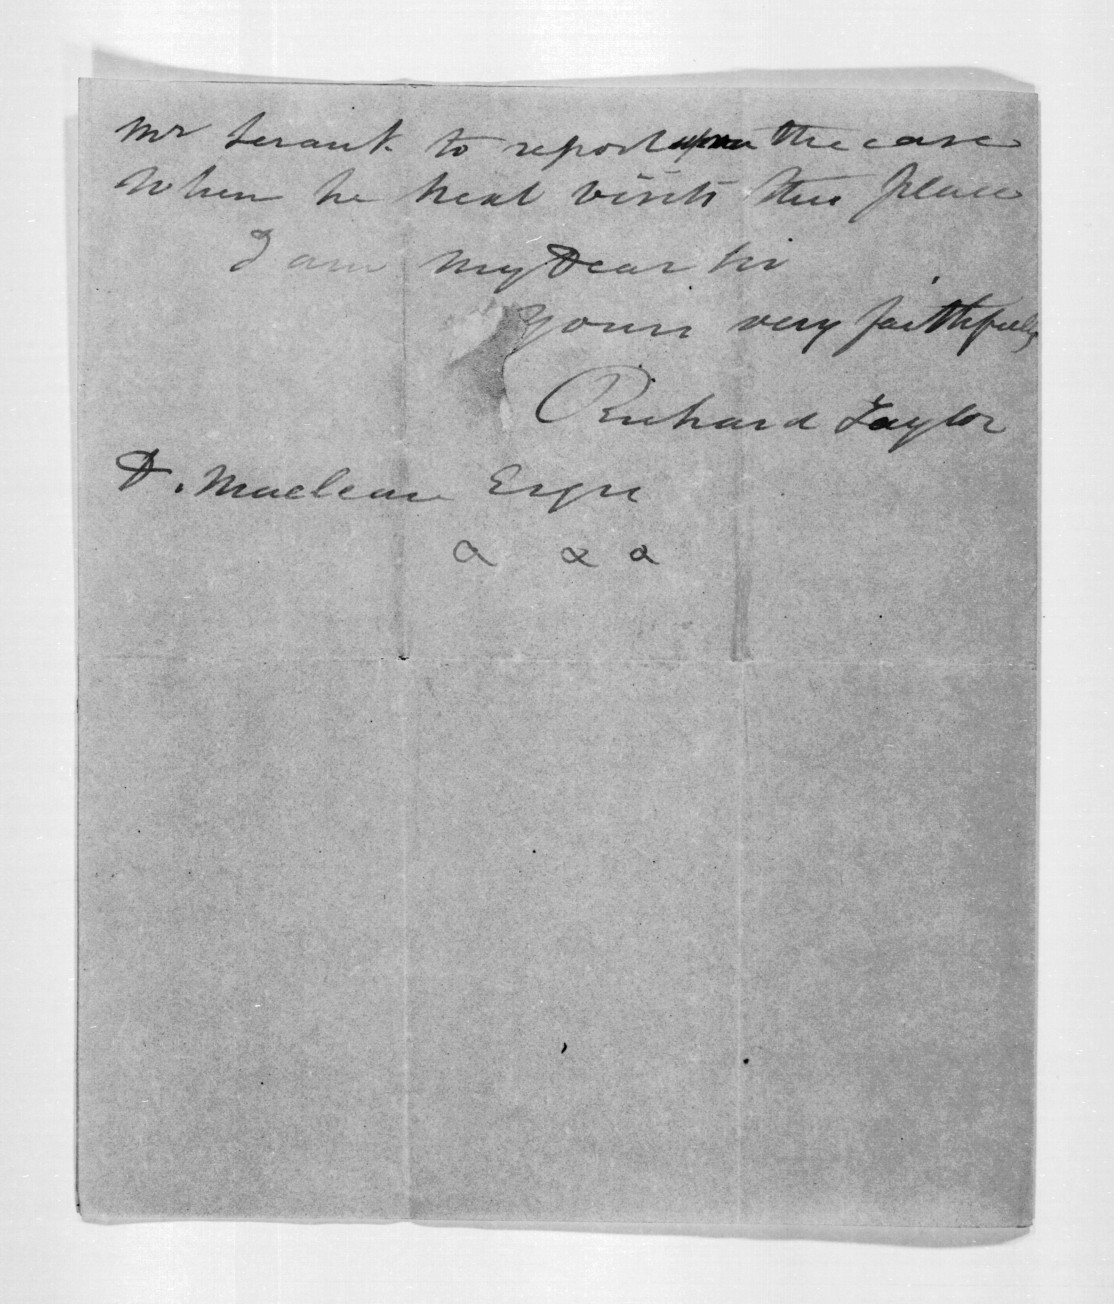 Mr Serank to report upon the case
When he next visits this place
I am My Dear Sir
Yours very faithfully
Richard Taylor
D. Maclean Esqre
a a a